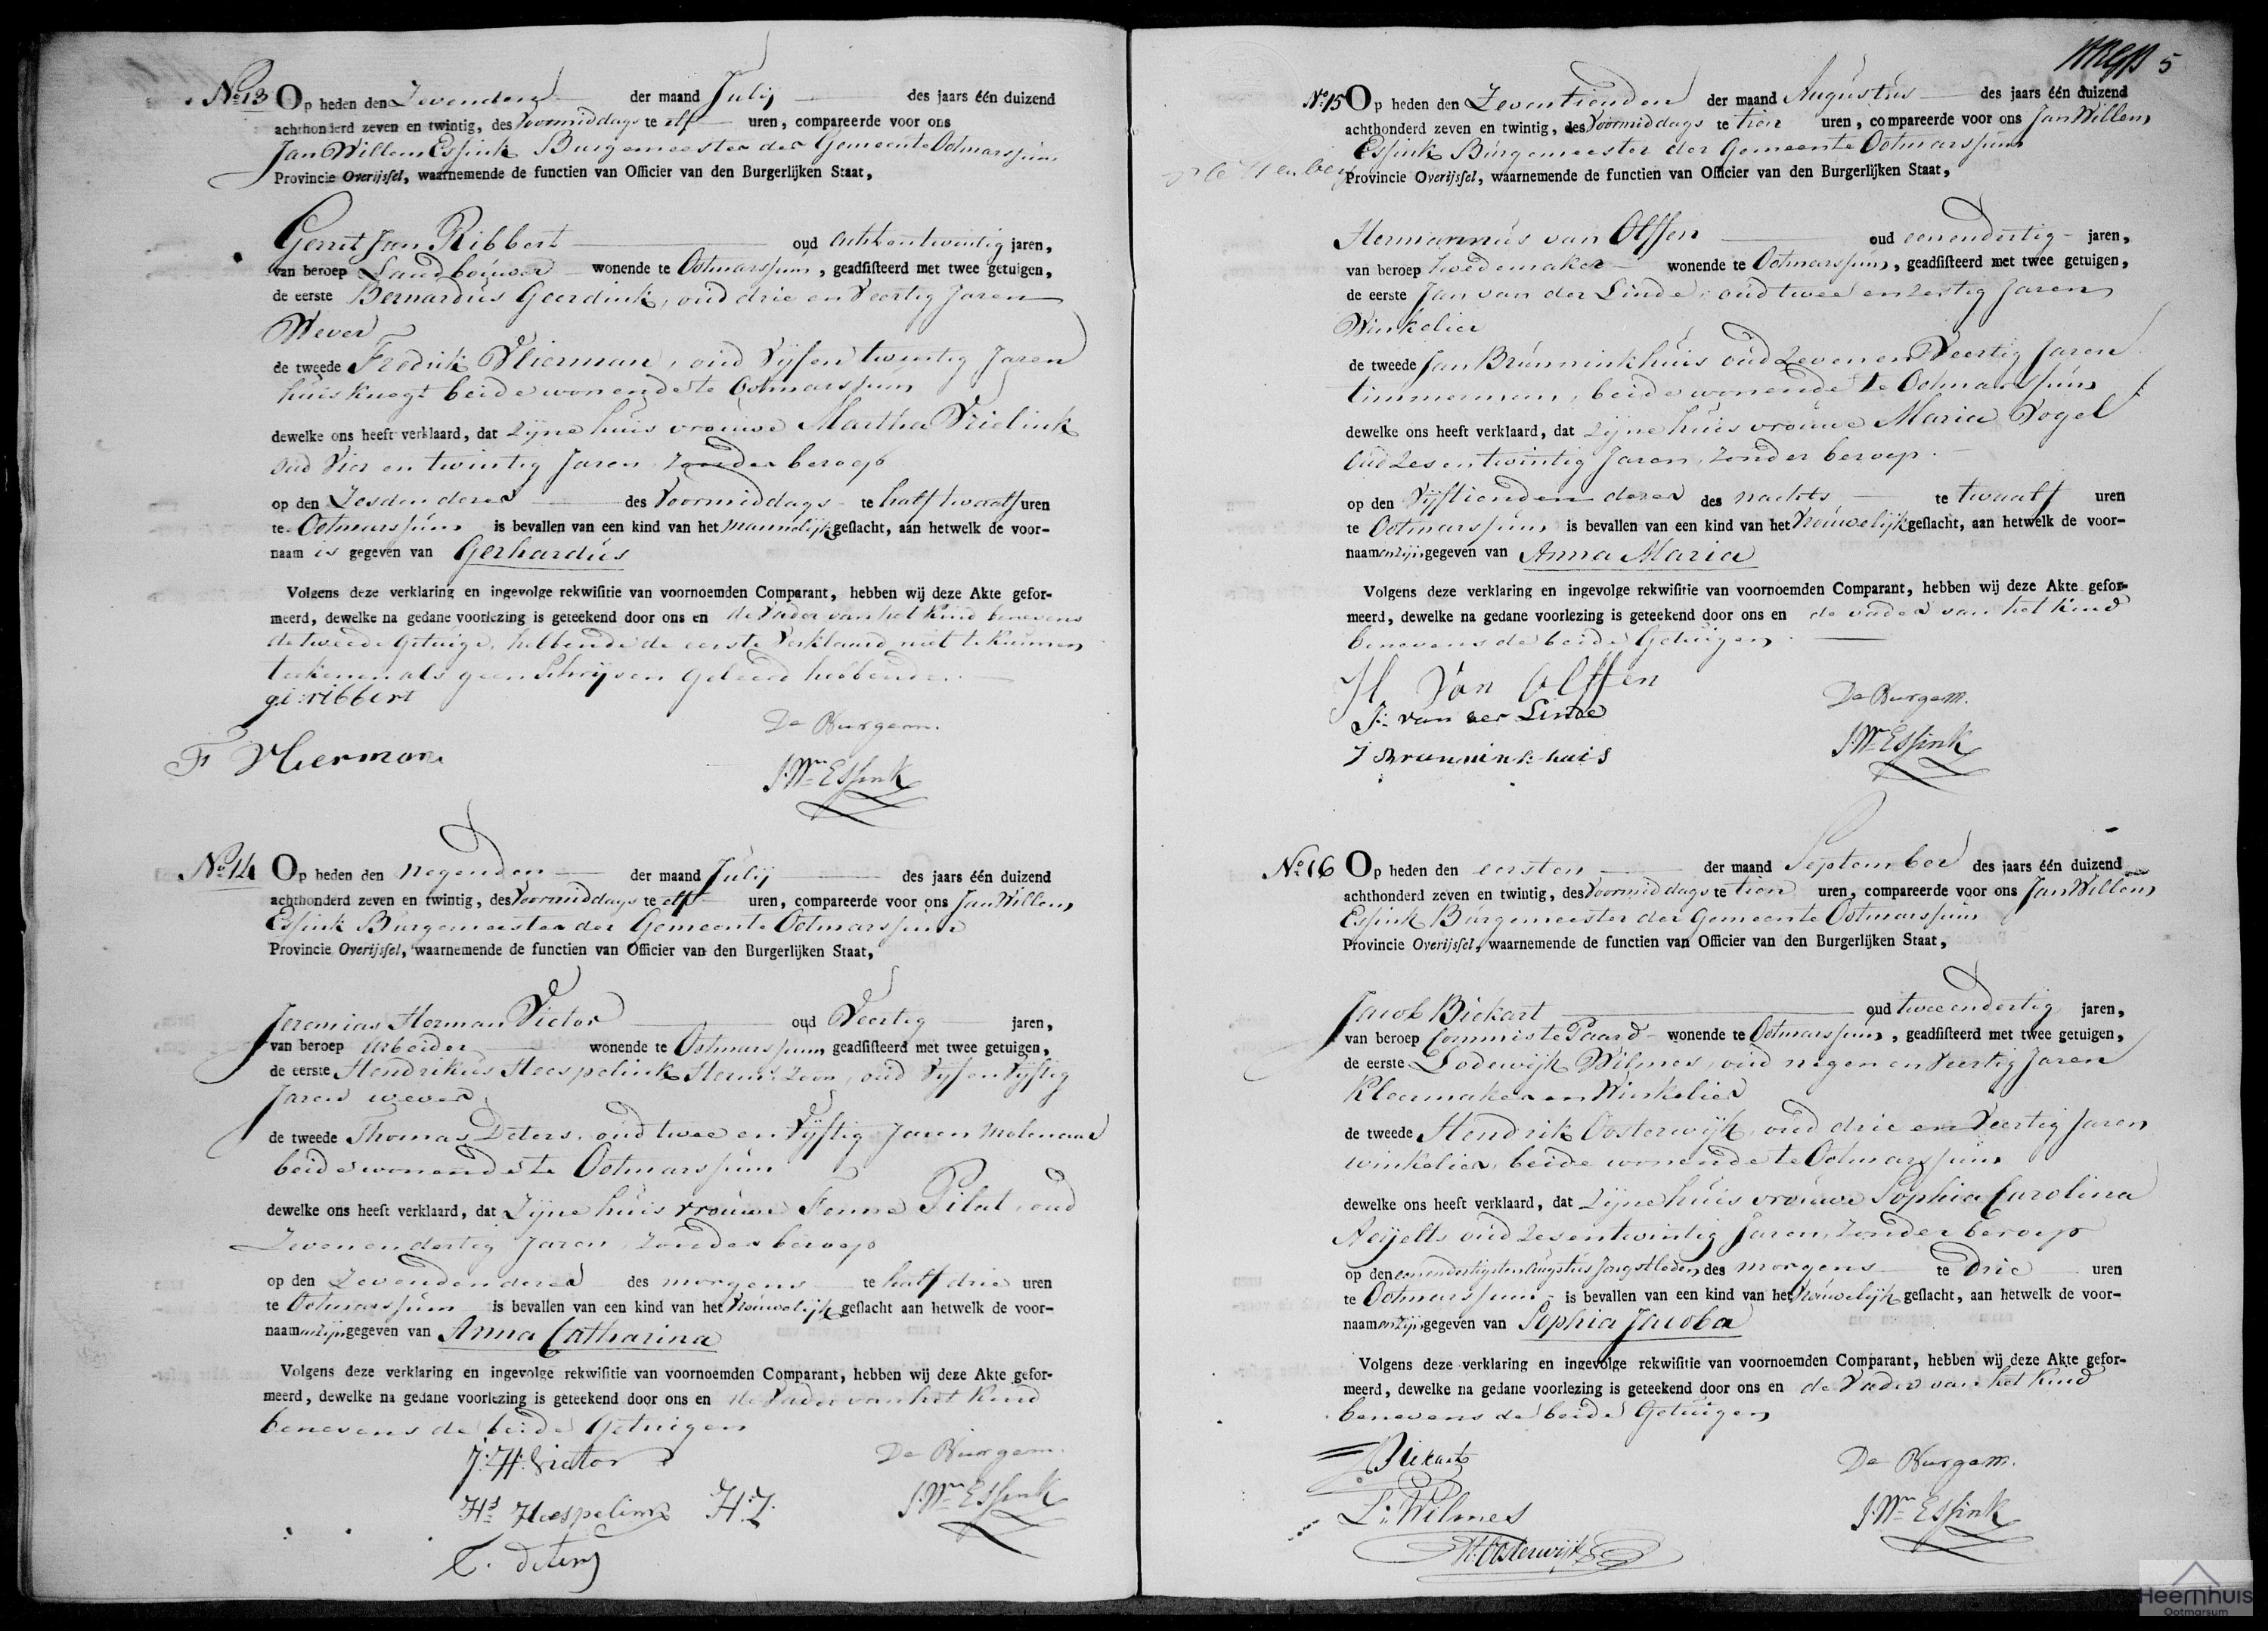 No 13 Op heden den Zevenden der maand Julij des jaars één duizend
achthonderd zeven en twintig, des Voormiddags te elf uren, compareerde voor ons
Jan Willem Essink Burgemeester der Gemeente Ootmarssum
Provincie Overijssel, waarnemende de functien van Officier van den Burgerlijken Staat,
Gerrit Jan Ribbert oud achtentwintig jaren,
van beroep Landbouwer wonende te Ootmarssum, geadsisteerd met twee getuigen,
de eerste Bernardus Geerdink, oud drie en Veertig Jaren
Wever
de tweede Fredrik Vlierman, oud Vijfentwintig Jaren
huisknegt beide wonende te Ootmarssum
dewelke ons heeft verklaard, dat Zijne huisvrouwe Martha Vrielink
oud Vier en twintig Jaren Zonder beroep
op den Zesden dezer des Voormiddags te half twaalf uren
te Ootmarssum is bevallen van een kind van het Mannelijk geslacht, aan hetwelk de voor-
naam is gegeven van Gerhardus
Volgens deze verklaring en ingevolge rekwisitie van voornoemden Comparant, hebben wij deze Akte gefor-
meerd, dewelke na gedane voorlezing is geteekend door ons en de Vader van het Kind benevens
de tweede Getuige, hebbende de eerste Verklaard niet te kunnen
teekenen als geen Schrijven Geleerd hebbende.
ge:ribbert
De Burgem.
F Vlierman
J. Wm Essink
No 14 Op heden den Negenden der maand Julij des jaars één duizend
achthonderd zeven en twintig, des Voormiddags te elf uren, compareerde voor ons Jan Willem
Essink Burgemeester der Gemeente Ootmarssum
Provincie Overijssel, waarnemende de functien van Officier van den Burgerlijken Staat,
Jeremias Herman Victor oud Veertig jaren,
van beroep Arbeider wonende te Ootmarssum geadsisteerd met twee getuigen,
de eerste Hendrikus Heespelink Herms Zoon, oud Vijfenvijftig
Jaren wever
de tweede Thomas Deters, oud twee en Vijftig Jaren Molenaar
beide wonende te Ootmarssum
dewelke ons heeft verklaard, dat Zijne huisvrouwe Fenne Pilat, oud
Zevenendertig Jaren, Zonder beroep
op den Zevenden dezer des morgens te half drie uren
te Ootmarssum is bevallen van een kind van het Vrouwelijk geslacht aan hetwelk de voor-
naamen zijn gegeven van Anna Catharina
Volgens deze verklaring en ingevolge rekwisitie van voornoemden Comparant, hebben wij deze Akte gefor-
meerd, dewelke na gedane voorlezing is geteekend door ons en de Vader van het Kind
benevens de beide Getuigen
J: H: Victor
De Burgem.
Hs Heespelink H:Z.
J. Wm Essink
T. Deters
5
No 15 Op heden den Zeventienden der maand Augustus des jaars één duizend
achthonderd zeven en twintig, des Voormiddags te tien uren, compareerde voor ons Jan Willem
Essink Burgemeester der Gemeente Ootmarssum
Provincie Overijssel, waarnemende de functien van Officier van den Burgerlijken Staat,
Hermannus van Olffen oud eenendertig jaren,
van beroep hoedemaker wonende te Ootmarssum, geadsisteerd met twee getuigen,
de eerste Jan van der Linde, oud twee en Zestig Jaren
Winkelier
de tweede Jan Brunninkhuis oud Zeven en Veertig Jaren
timmerman, beide wonende te Ootmarssum
dewelke ons heeft verklaard, dat Zijne huisvrouwe Maria Vogel
Oud Zesentwintig Jaren, Zonder beroep.
op den Vijftienden dezer des nachts te twaalf uren
te Ootmarssum is bevallen van een kind van het Vrouwelijk geslacht, aan hetwelk de voor-
naamen zijn gegeven van Anna Maria
Volgens deze verklaring en ingevolge rekwisitie van voornoemden Comparant, hebben wij deze Akte gefor-
meerd, dewelke na gedane voorlezing is geteekend door ons en de vader van het Kind
benevens de beide Getuigen
H van Olffen
De Burgem.
J: van der Linde
J. Wm Essink
J Brunninkhuis
No 16 Op heden den eersten der maand September des jaars één duizend
achthonderd zeven en twintig, des Voormiddags te tien uren, compareerde voor ons Jan Willem
Essink Burgemeester der Gemeente Ootmarssum
Provincie Overijssel, waarnemende de functien van Officier van den Burgerlijken Staat,
Jacob Bickart oud tweeendertig jaren,
van beroep Commis te Paard wonende te Ootmarssum, geadsisteerd met twee getuigen,
de eerste Lodewijk Wilmes, oud negen en Veertig Jaren
Kleermaker en Winkelier
de tweede Hendrik Oosterwijk, oud drie en Veertig Jaren
winkelier, beide wonende te Ootmarssum
dewelke ons heeft verklaard, dat Zijne huisvrouwe Sophia Carolina
Aeijelts oud Zesentwintig Jaren, Zonder beroep
op den eenendertigsten Augustus Jongstleden des morgens te drie uren
te Ootmarssum is bevallen van een kind van het Vrouwelijk geslacht, aan hetwelk de voor-
naamen zijn gegeven van Sophia Jacoba
Volgens deze verklaring en ingevolge rekwisitie van voornoemden Comparant, hebben wij deze Akte gefor-
meerd, dewelke na gedane voorlezing is geteekend door ons en de Vader van het Kind
benevens de beide Getuigen
Bickart
De Burgem.
L: Wilmes
J. Wm Essink
H: Oosterwijk
Heernhuis
Ootmarsum